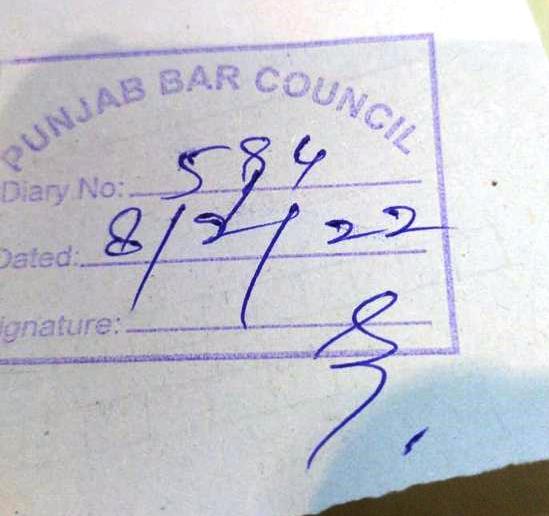 PUNJAB BAR COUNCIL
Diary No: 584
Dated: 8/2/22
ignature: